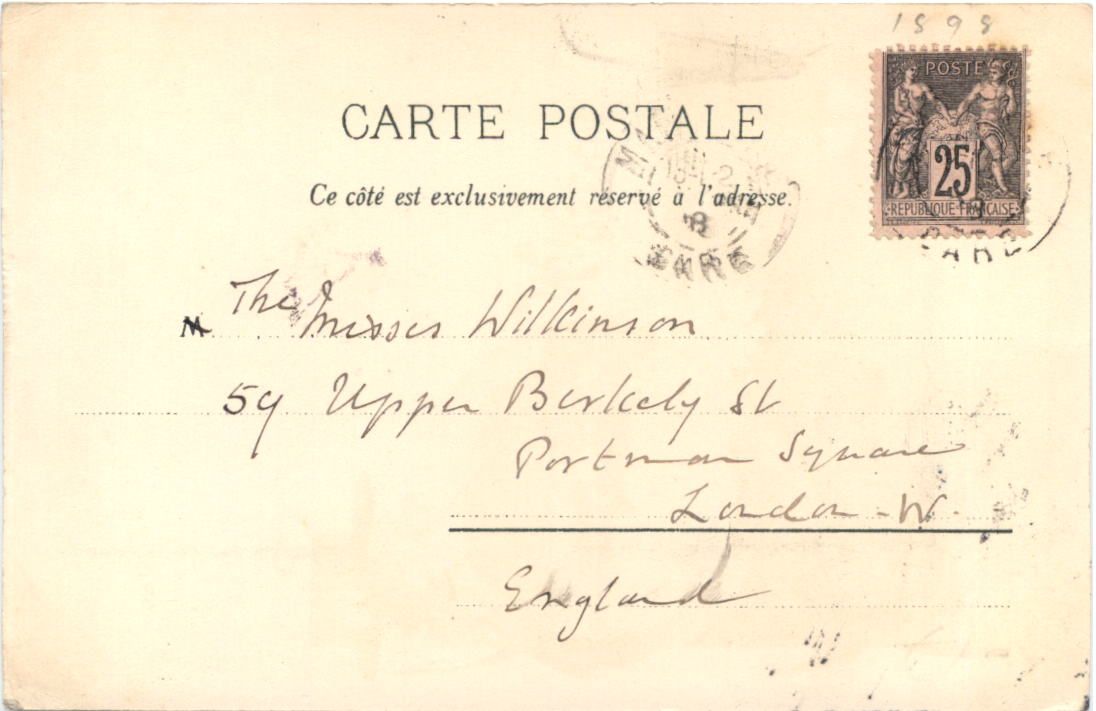 1898
POSTE
25
REPUBLIQUE FRANÇAISE
CARTE POSTALE
Ce côté est exclusivement réservé à l'adresse.
GARE
M The Misses Wilkinson
59 Upper Berkely St
Portman Square
London - W.
England